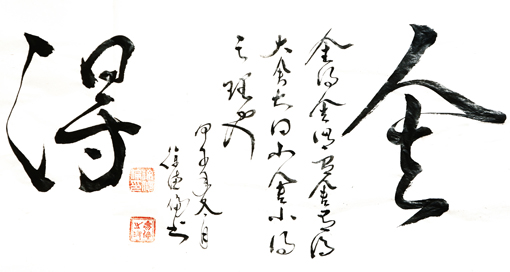 舍
舍得舍得舍得
大舍大得小舍小得
之理也
甲午年冬月
徐书
得